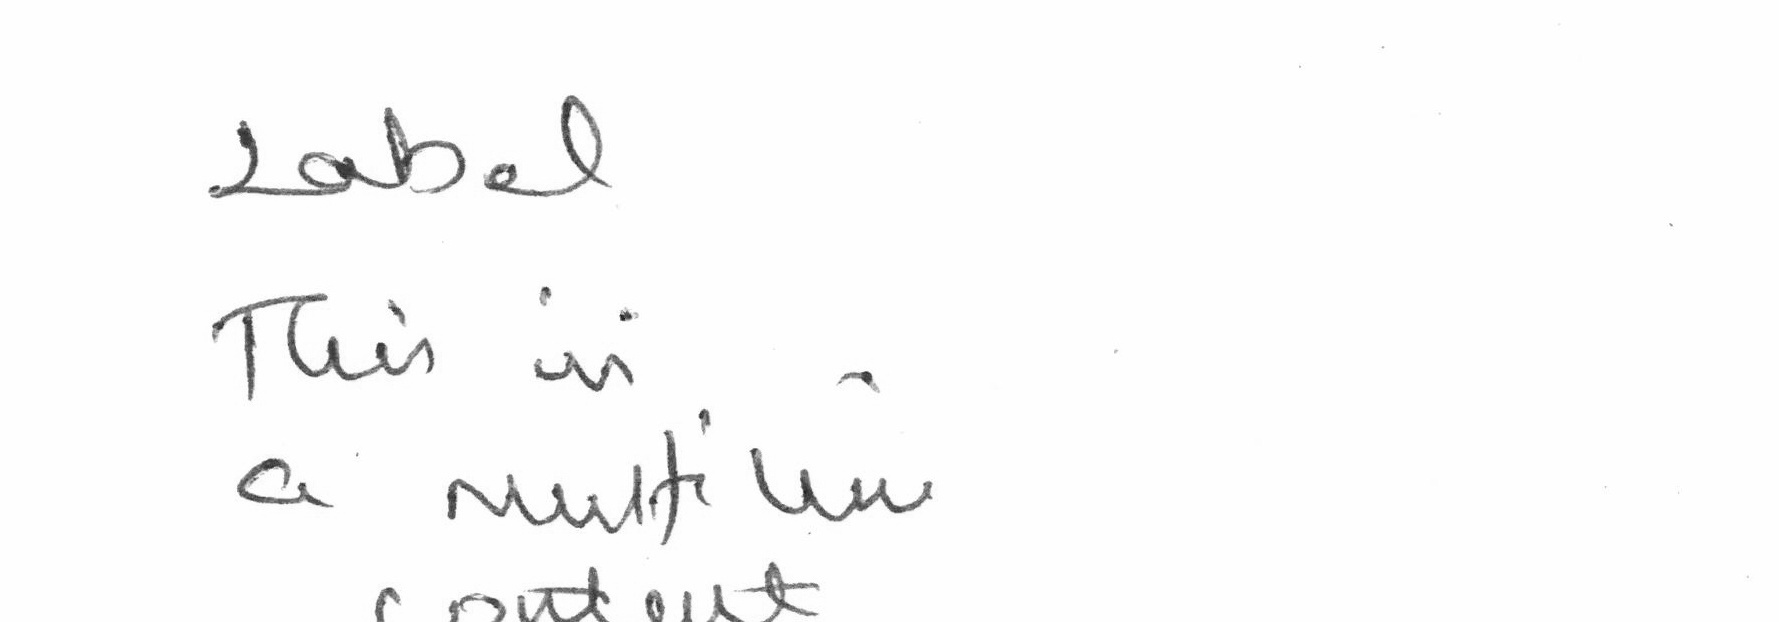 Label
This is
a multi line
content